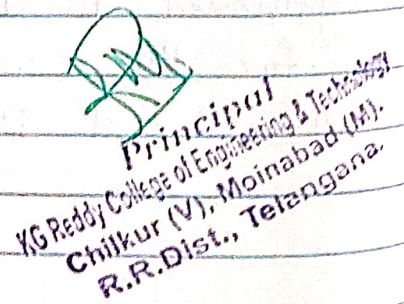 Principal
KG Reddy College of Engineering & Technology
Chilkur (V), Moinabad (M).
R.R.Dist., Telangana.